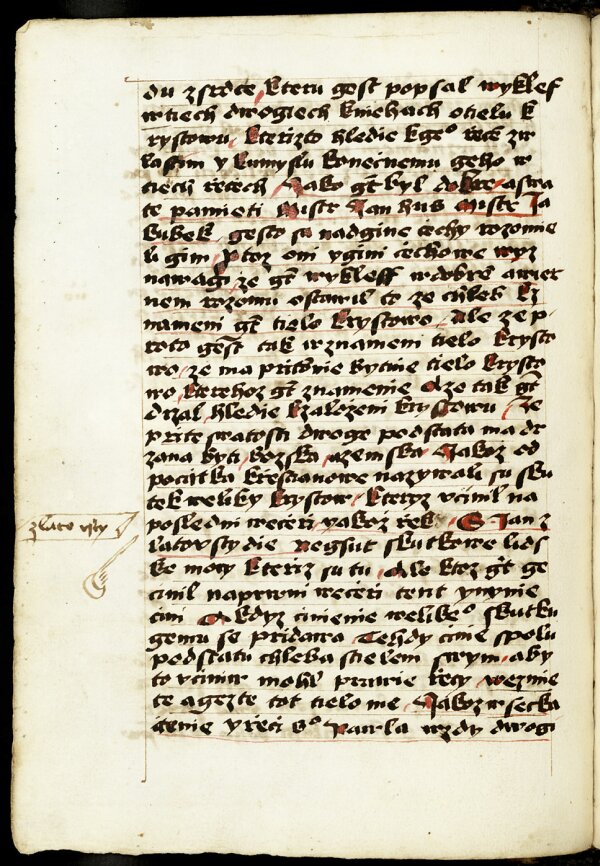 du z srdce, kteru gest popsal wyklef
w tiech dwogiech knichach o tielu k
rystowu, kterizto hledie k geᵒ řeči zw
lasstim y k umyslu konečnemu geho w
tiech řečech Jako gt byl dobre a swa
te pamieti Mistr Jan hus Mistr Ja
kubek, gesto su nad gine čechy rozomie
li gim, Protoz oni y gini čechowe wyz
nawagi ze gt wykleff w dobrē a wier
nem rozomu ostawil to ze chleb w z
nameni gt tielo krystowo, Ale ze p
roto gest tak w znameni tielo krysto
wo, ze ma pritōnie bytnie tielo krysto
wo, kterehoz gt znamenie A ze tak gt
drzal, hledie k zalozeni krystowu, Ze
při te swatosti dwoge podstata ma do
zana byti, bozska, a zemska, Jakoz od
počátka křestianowe nazywali su sku
tek weliky krystow, kteryz učinil na
posledni wečeři, yakoz řek, S Jan z
latousty die Negsut skutkowe lids
ke mocy kteriz su tu, Ale ktoz gt ge
cinil na prwni wečeri tent y nynie
cini A kdyz cinienie welikeᵒ skutku
gemu se pridawa Tehdy cinie spolu
podstatu chleba s tielem swym, aby
to uciniw mohl prawie řecy, wezmie
te a gezte tot tielo me, Jakoz w sečka
čtenie y řeči Sᵒ Pawla wzdy dwogi
zlato usty